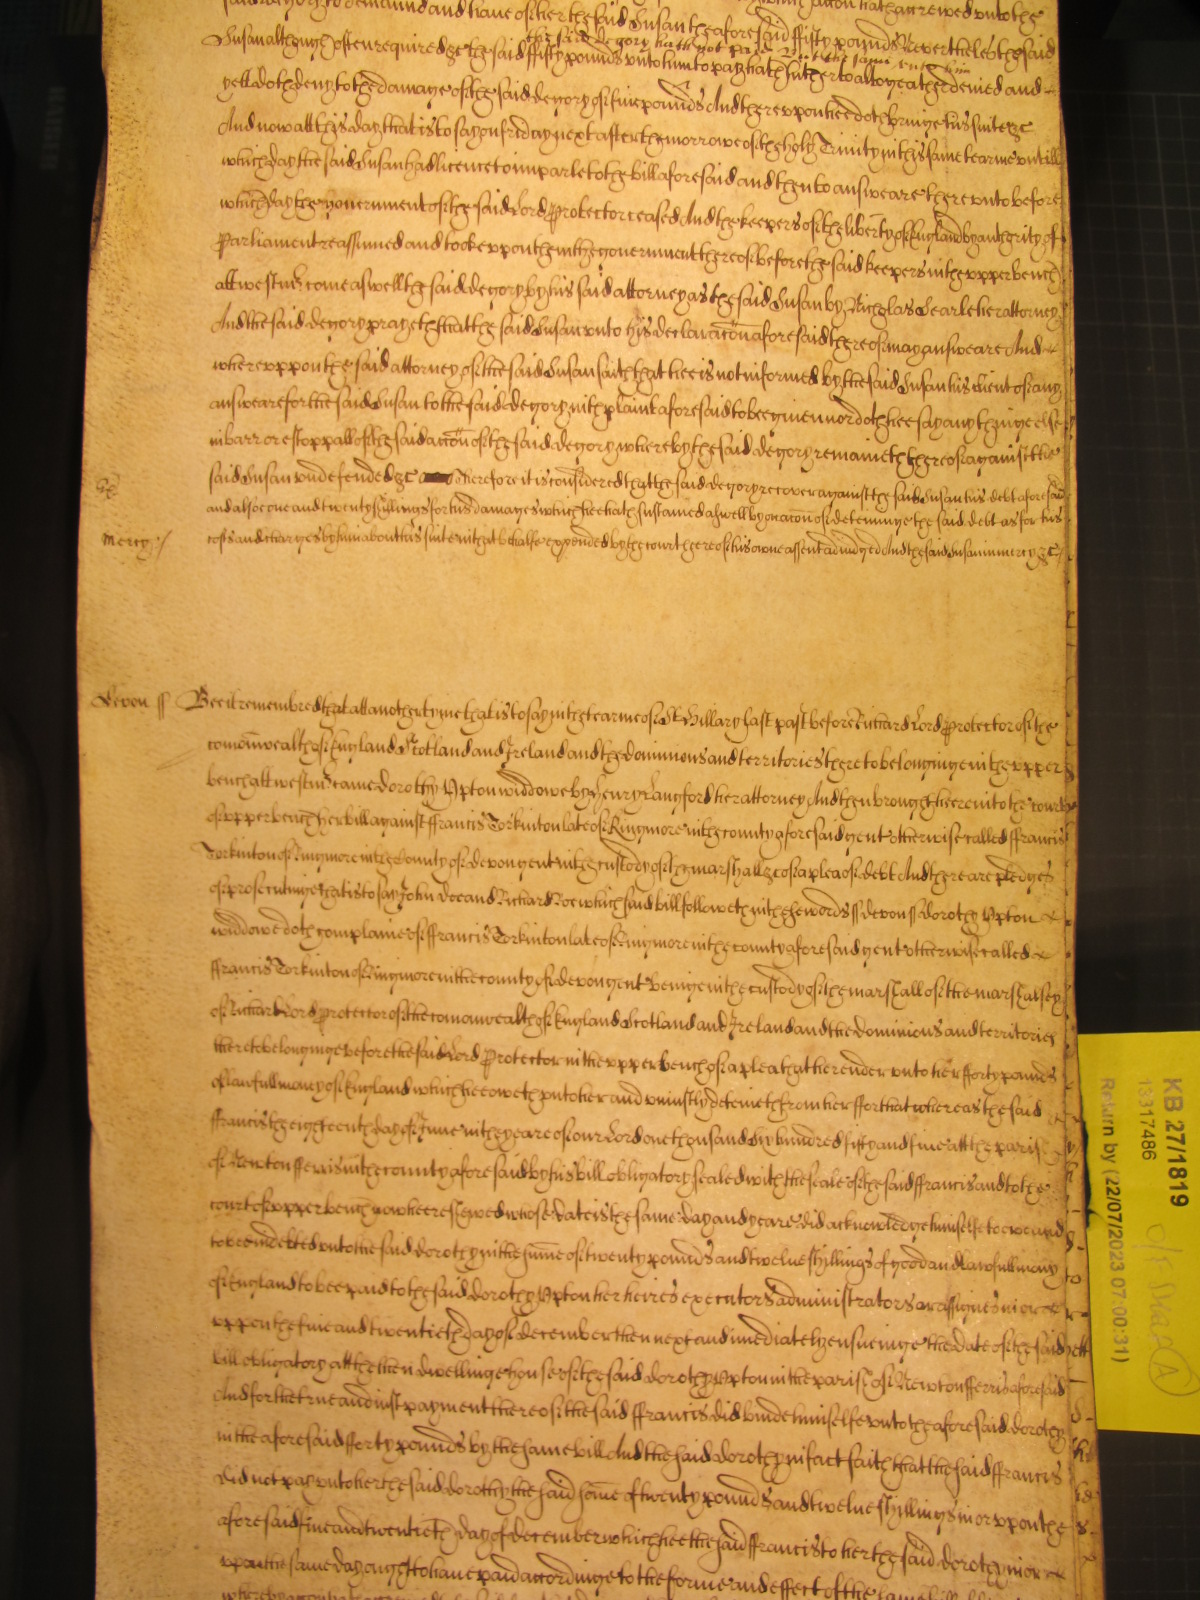 said Degory to demaund and have of her the said Susan the aforesaid ffifty pounds Neverthelesse the said
the said Degory hath not paid the same unto him
Susan although often required &c the said ffifty pounds unto him to pay hath hitherto altogeather denied and
yett doth deny to the damage of the said Degory of five pounds And thereuppon hee doth bringe his suite &c
And now att this day that is to say on friday next after the morrowe of the holy Trinity in this same tearme untill
which day the said Susan had licence to imparle to the bill aforesaid and then to answeare thereunto before
which day the governement of the said Lord Protector ceased And the keepers of the liberty of England by authority of
Parliament reassumed and tooke uppon them the governement thereof before the said keepers in the upper bench
att Westmr come aswell the said Degory by his said attorney as the said Susan by Nicholas Searle her attorney
And the said Degory prayeth that the said Susan unto his declaracon aforesaid thereof may answeare And
whereuppon the said attorney of the said Susan saith that hee is not informed by the said Susan his client of any
answeare for the said Susan to the said Degory in the plaint aforesaid to bee given nor doth hee say any thinge else
in barr or estoppall of the said accon of the said Degory whereby the said Degory remaineth thereof against the
said Susan undefended &c Therefore it is considered that the said Degory recover against the said Susan his debt aforesaid
and alsoe one and twenty shillings for his damages which hee hath sustained aswell by occacon of deteininge the said debt as for his
mercy
costs and charges by him about his suite in that behalfe expended by the court thereof his owne assent adjudged And the said Susan in mercy &c
Devon ss Bee it remembred that att another tyme that is to say in the tearme of St Hillary last past before Richard Lord Protector of the
comonwealth of England Scotland and Ireland and the Dominions and territories thereto belonginge in the upper
bench att Westmr came Dorothy Upton widdowe by Henry Langford her attorney And then brought heere into the court
of upper bench her bill against ffrancis Torkinton late of Kingmore in the county aforesaid gent otherwise called ffrancis
Torkinton of Kingmore in the County of Devon gent in the custody of the marshall &c of a plea of debt And there are pledges
of prosecutinge that is to say John Doe and Richard Roe which said bill followeth in these words ss Devon ss Dorothy Upton
widdowe doth complaine of ffrancis Torkinton late of Kingmore in the county aforesaid gent otherwise called
ffrancis Torkinton of Kingmore in the county of Devon gent beinge in the custody of the marshall of the marshalsey
of Richard Lord Protector of the comonwealth of England Scotland and Ireland and the Dominions and territories
thereto belonginge before the said Lord Protector in the upper bench of a plea that he render unto her fforty pounds
of lawfull mony of England which hee oweth unto her and unjustly deteineth from her ffor that whereas the said
ffrancis the eighteenth day of June in the yeare of our Lord one thousand six hundred fifty and five att the parish
of Newton fferris in the county aforesaid by his bill obligatory sealed with the seale of the said ffrancis and to the
court of upper bench now heere shewed whose date is the same day and yeare did acknowledge himselfe to owe and
to bee indebted unto the said Dorothy in the summe of twenty pounds and twelve shillings of good and lawfull mony
of England to bee paid to the said Dorothy Upton her heires executors administrators or assignes in or
uppon the five and twentieth day of December then next and imediately ensueinge the date of the said
bill obligatory att the then dwellinge house of the said Dorothy Upton in the parish of Newton fferris aforesaid
And for the true and just payment thereof the said ffrancis did binde himselfe unto the aforesaid Dorothy
in the aforesaid fforty pounds by the same bill And the said Dorothy in fact saith that the said ffrancis
did not pay unto her the said Dorothy the said some of twenty pounds and twelve shillings in or uppon the
aforesaid five and twentieth day of December which hee the said ffrancis to her the said Dorothy in or
uppon the same day ought to have paid accordinge to the forme and effect of the same bill
KB 27/1819
13317486
Return by (22/07/2023 07:00:31)